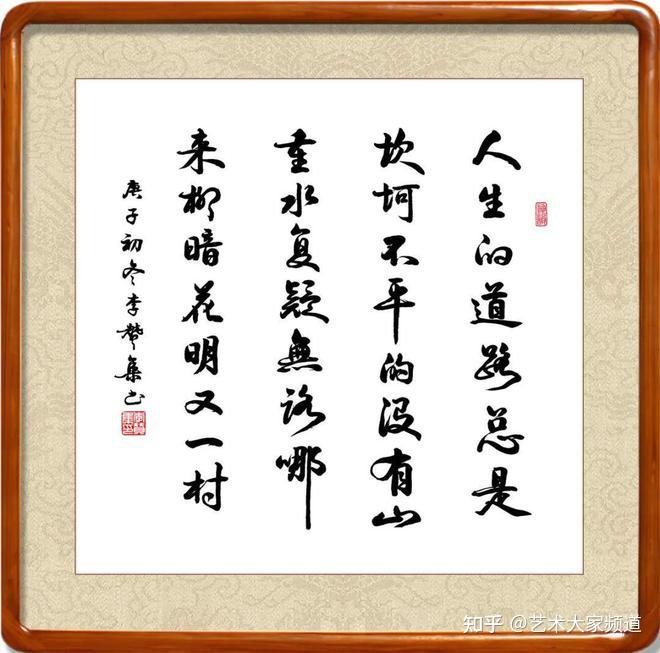 人生的道路总是
坎坷不平的没有山
重水复疑無路哪
来柳暗花明又一村
庚子初冬李赞集书
知乎 @艺术大家频道